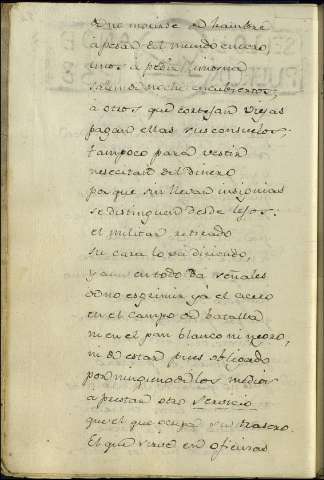 Uno muerde de hambre
à pesar del mundo entero,
unos à pedir limosna
salen de noche encubiertos;
a otros, que cortejan viejas
pagan ellas sus consuelos;
tampoco para vestir
necesitan del dinero
por que sin llevar insignias
se distinguen desde lejos:
el militar retirado
su cara lo va diciendo,
y aun en todo da señales
de no esgrimir yá el acero
en el campo de batalla
ni en el pan blanco ni negro,
ni de estar pues obligado
por ninguno de los medios
à prestar otro servicio
que el que ocupa su trasero.
El que sirve en oficinas